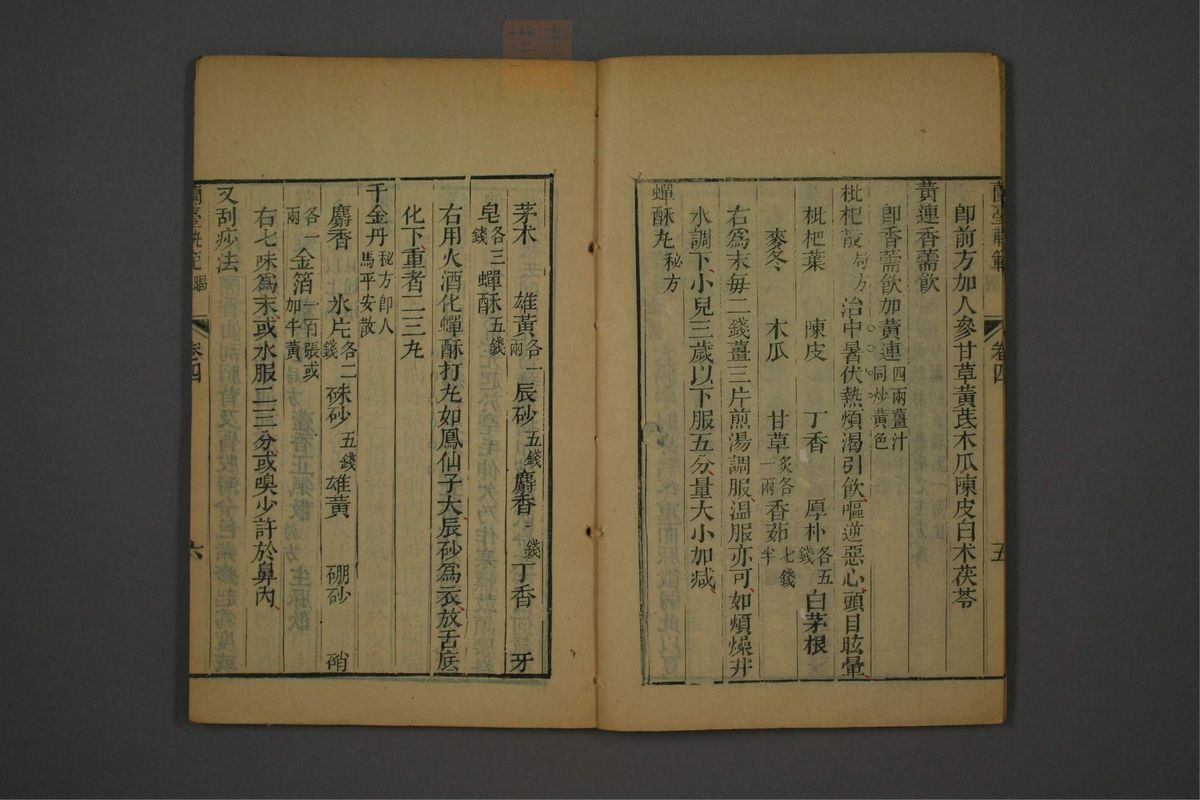 蘭臺軌範 卷四 五
卽前方加人參甘草黃茋木瓜陳皮白术茯苓
黃連香薷飲
卽香薷飲加黃連四兩薑汁同炒黃色
枇杷散局方 治中暑伏熱煩渴引飲嘔逆惡心頭目眩暈
枇杷葉 陳皮 丁香 厚朴各五錢 白茅根
麥冬 木瓜 甘草炙各一兩 香茹七錢半
右爲末每二錢薑三片煎湯調服溫服亦可如煩燥井
水調下小兒三歲以下服五分量大小加減
蟬酥丸秘方
茅术 雄黃各一兩 辰砂五錢 麝香一錢 丁香 牙
皂各三錢 蟬酥五錢
右用火酒化蟬酥打丸如鳳仙子大辰砂爲衣放舌底
化下重者二三丸
千金丹秘方卽人馬平安散
麝香 氷片各二錢 硃砂五錢 雄黃 硼砂 硝
各一兩 金箔一百張或加牛黃
右七味爲末或水服二三分或嗅少許於鼻內
又刮痧法
蘭臺軌範 卷四 六